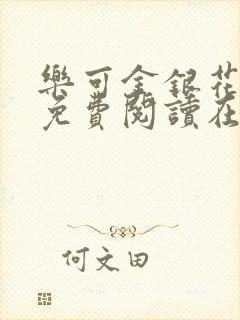 樂可金銀花
免費閱讀在
何文田